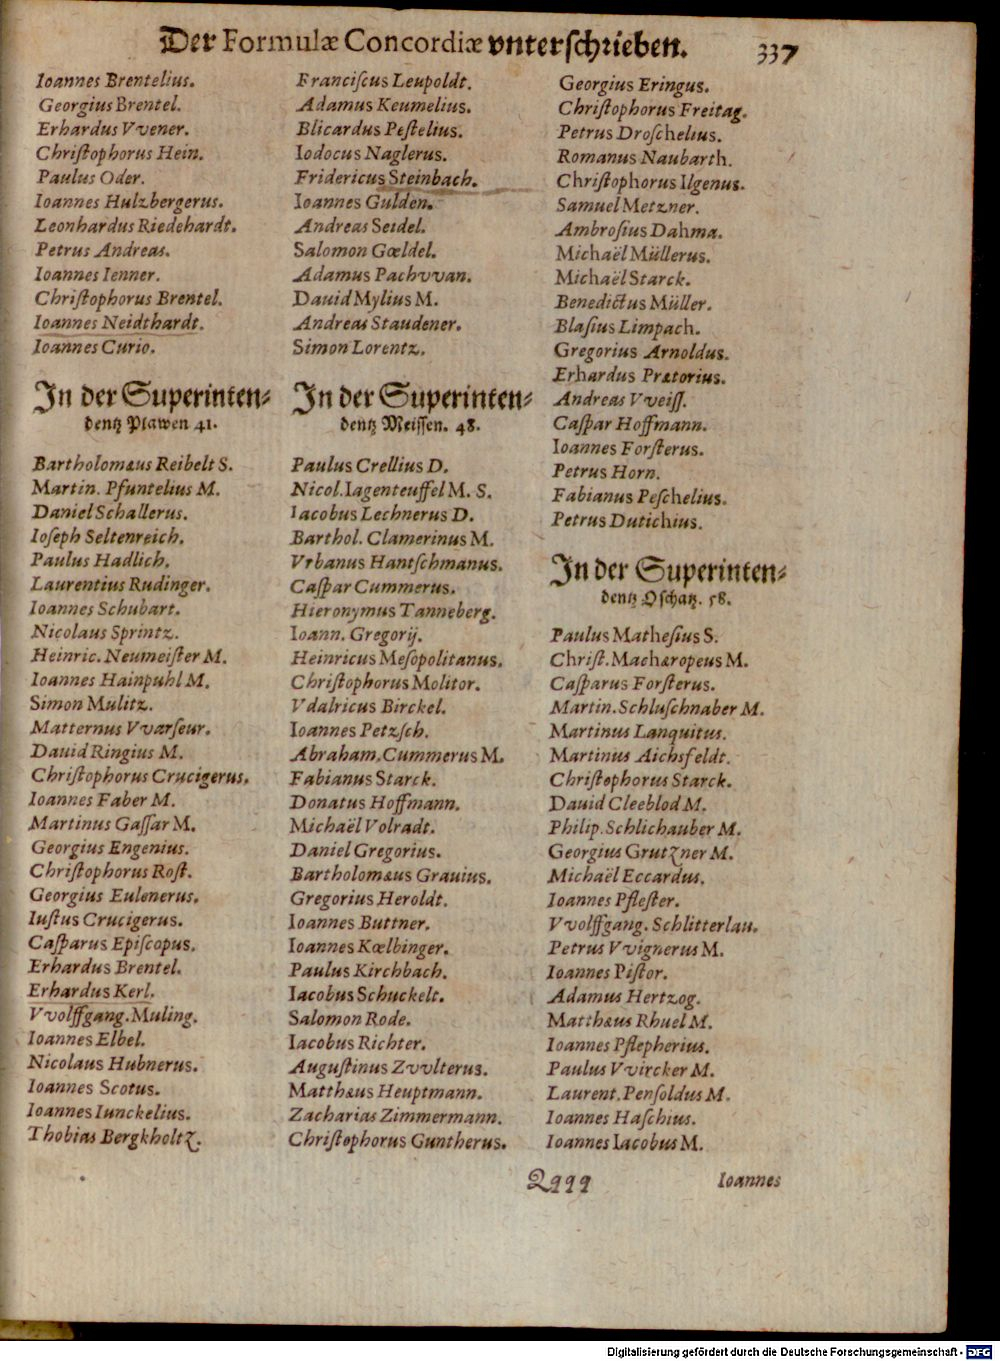 Der Formulæ Concordiæ vnterschrieben. 337
Ioannes Brentelius.
Georgius Brentel.
Erhardus Vvener.
Christophorus Hein.
Paulus Oder.
Ioannes Hulzbergerus.
Leonhardus Riedehardt.
Petrus Andreas.
Ioannes Ienner.
Christophorus Brentel.
Ioannes Neidthardt.
Ioannes Curio.
In der Superinten-
dentz Plawen 41.
Bartholomæus Reibelt S.
Martin. Pfuntelius M.
Daniel Schallerus.
Ioseph Seltenreich.
Paulus Hadlich.
Laurentius Rudinger.
Ioannes Schubart.
Nicolaus Sprintz.
Heinric. Neumeister M.
Ioannes Hainpuhl M.
Simon Mulitz.
Matternus Vvarseur.
Dauid Ringius M.
Christophorus Crucigerus.
Ioannes Faber M.
Martinus Gassar M.
Georgius Engenius.
Christophorus Rost.
Georgius Eulenerus.
Iustus Crucigerus.
Casparus Episcopus.
Erhardus Brentel.
Erhardus Kerl.
Vvolffgang. Muling.
Ioannes Elbel.
Nicolaus Hubnerus.
Ioannes Scotus.
Ioannes Iunckelius.
Thobias Bergkholtz.
Franciscus Leupoldt.
Adamus Keumelius.
Blicardus Pestelius.
Iodocus Naglerus.
Fridericus Steinbach.
Ioannes Gulden.
Andreas Seidel.
Salomon Gœldel.
Adamus Pachvvan.
Dauid Mylius M.
Andreas Staudener.
Simon Lorentz.
In der Superinten-
dentz Meissen. 48.
Paulus Crellius D.
Nicol. Iagenteuffel M. S.
Iacobus Lechnerus D.
Barthol. Clamerinus M.
Vrbanus Hantschmanus.
Caspar Cummerus.
Hieronymus Tanneberg.
Ioann. Gregorij.
Heinricus Mesopolitanus.
Christophorus Molitor.
Vdalricus Birckel.
Ioannes Petzsch.
Abraham. Cummerus M.
Fabianus Starck.
Donatus Hoffmann.
Michaël Volradt.
Daniel Gregorius.
Bartholomæus Grauius.
Gregorius Heroldt.
Ioannes Buttner.
Ioannes Kœlbinger.
Paulus Kirchbach.
Iacobus Schuckelt.
Salomon Rode.
Iacobus Richter.
Augustinus Zvvlterus.
Matthæus Heuptmann.
Zacharias Zimmermann.
Christophorus Guntherus.
Georgius Eringus.
Christophorus Freitag.
Petrus Droschelius.
Romanus Naubarth.
Christophorus Ilgenus.
Samuel Metzner.
Ambrosius Dahma.
Michaël Müllerus.
Michaël Starck.
Benedictus Müller.
Blasius Limpach.
Gregorius Arnoldus.
Erhardus Prætorius.
Andreas Vveiss.
Caspar Hoffmann.
Ioannes Forsterus.
Petrus Horn.
Fabianus Peschelius.
Petrus Dutichius.
In der Superinten-
dentz Oschatz. 58.
Paulus Mathesius S.
Christ. Machæropeus M.
Casparus Forsterus.
Martin. Schluschnaber M.
Martinus Lanquitus.
Martinus Aichsfeldt.
Christophorus Starck.
Dauid Cleeblod M.
Philip. Schlichauber M.
Georgius Grutzner M.
Michaël Eccardus.
Ioannes Pflester.
Vvolffgang. Schlitterlau.
Petrus Vvignerus M.
Ioannes Pistor.
Adamus Hertzog.
Matthæus Rhuel M.
Ioannes Pflepherius.
Paulus Vvircker M.
Laurent. Pensoldus M.
Ioannes Haschius.
Ioannes Iacobus M.
Qqqq Ioannes
Digitalisierung gefördert durch die Deutsche Forschungsgemeinschaft - DFG